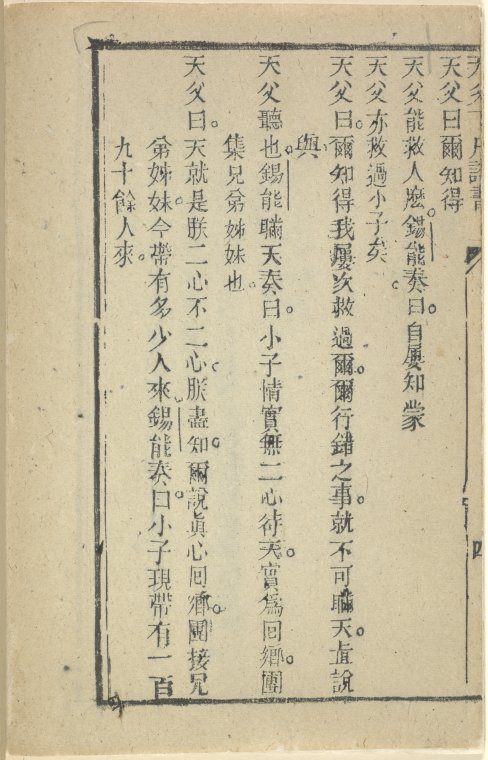 天父下凡詔書 四
天父曰爾知得
天父能救人麽。錫能奏曰。自屢知蒙
天父亦救過小子矣。
天父曰。爾知得我屢次救過爾。爾行錯之事。就不可瞞天。直說
與
天父聽也。錫能瞞天奏曰。小子情實無二心待天。實爲囘鄉。團
集兄弟姊妹也。
天父曰。天就是朕。二心不二心。朕盡知。爾說眞心囘鄉。團接兄
弟姊妹。今帶有多少人來。錫能奏曰。小子現帶有一百
九十餘人來。